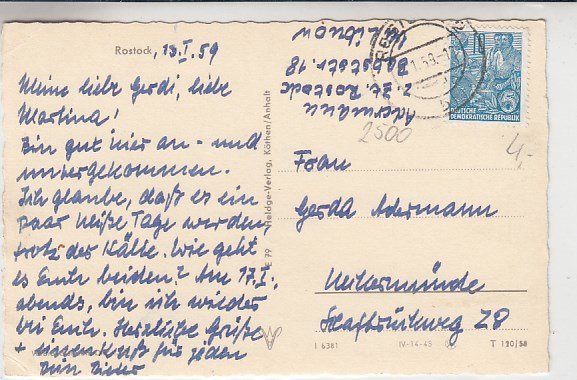 Rostock, 13.I.59
Meine liebe Gerdi, liebe
Martina!
Bin gut hier an- und
untergekommen.
Ich glaube, daß es ein
paar heiße Tage werden,
trotz der Kälte. Wie geht
es Euch beiden? Am 17.I.
abends, bin ich wieder
bei Euch. Herzliche Grüße
+ einen Kuß für jeden
Dein Dieter
E 79 Heldge-Verlag, Köthen/Anhalt
Adermann
z. Zt. Rostock
18
b/ Libnow
ROSTOCK
1.59
DEUTSCHE
DEMOKRATISCHE REPUBLIK
5
2500
4,-
Frau
Gerda Adermann
Ueckermünde
Haffruhweg 28
I 6381 IV-14-45 T 120/58